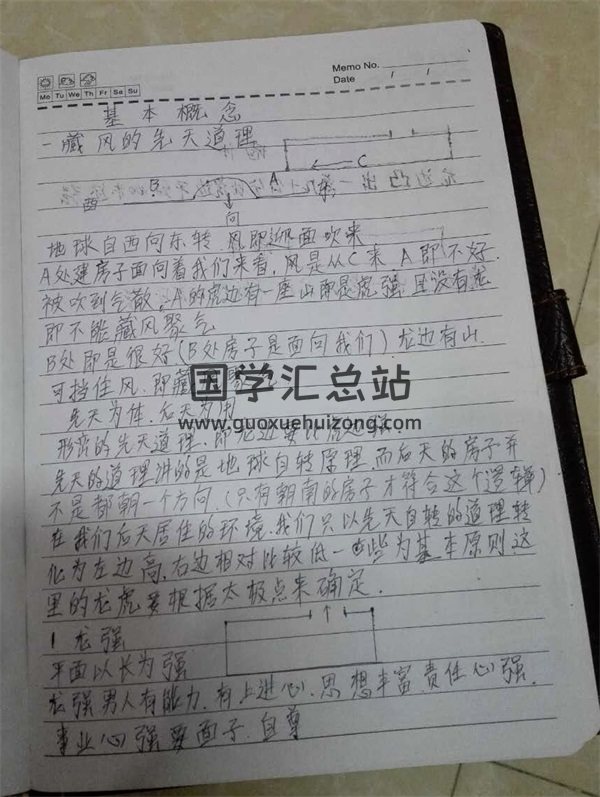 Memo No.
Date / /
Mo Tu We Th Fr Sa Su
基本概念
一 藏风的先天道理
A C
西 B 东
向
地球自西向东转 风即迎面吹来
A处建房子面向着我们来看，风是从C来 A即不好.
被吹到气散，A的虎边有一座山即是虎强 且没有龙
即不能藏风聚气
B处即是很好(B处房子是面向我们) 龙边有山
可挡住风.即藏
国学汇总站
先天为体，后天为用
www.guoxuehuizong.com
形峦的先天道理，即龙边要比虎边强.
先天的道理讲的是地球自转原理，而后天的房子并
不是都朝一个方向.(只有朝南的房子才符合这个逻辑)
在我们后天居住的环境，我们只以先天自转的道理转
化为左边高，右边相对比较低一些为基本原则 这
里的龙虎要根据太极点来确定.
1 龙强
平面以长为强
龙强男人有能力.有上进心.思想丰富 责任心强.
事业心强 要面子.自尊